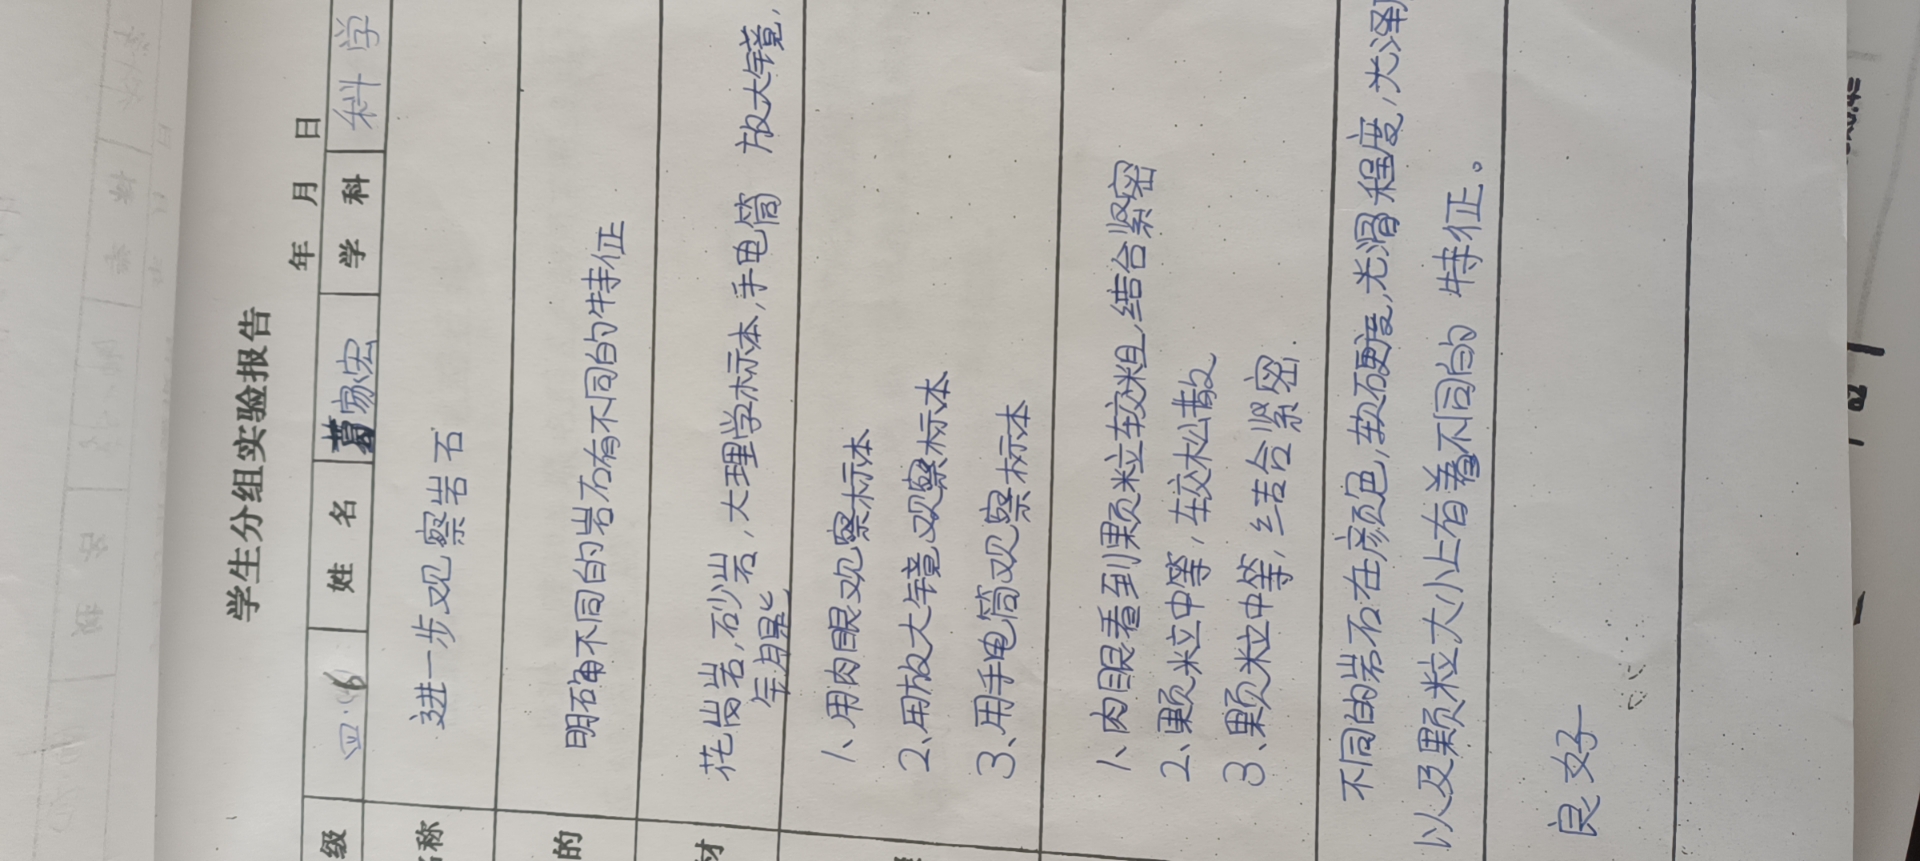 学生分组实验报告
年 月 日
级 四.6 姓 名 葛家宏 学 科 科学
名称 进一步观察岩石
的 明确不同的岩石有不同的特征
材 花岗岩,砂岩,大理学标本,手电筒 放大镜,
1、用肉眼观察标本
2、用放大镜观察标本
3、用手电筒观察标本
1、肉眼看到颗粒较粗,结合紧密
2、颗粒中等,较松散
3、颗粒中等,结合紧密.
不同的岩石在颜色,软硬度,光滑程度,光泽
以及颗粒大小上有着不同的 特征。
良好